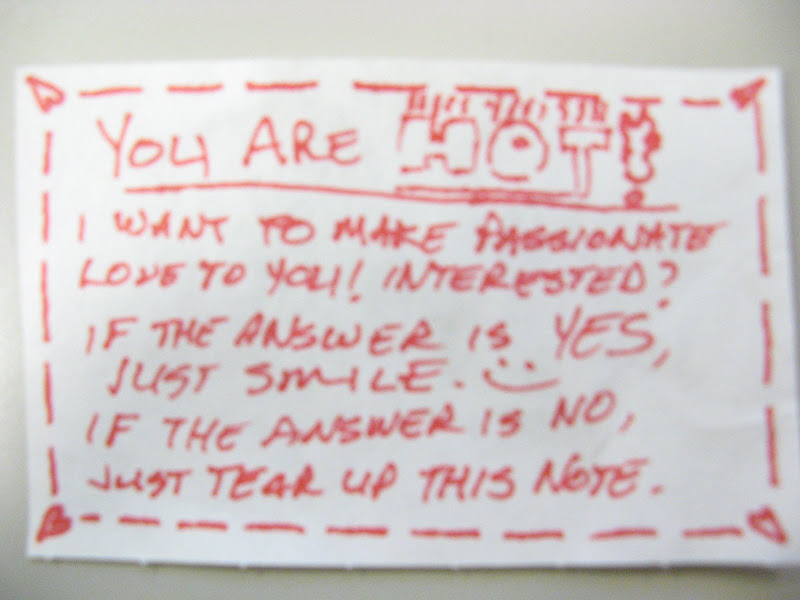 YOU ARE HOT!
I WANT TO MAKE PASSIONATE
LOVE TO YOU! INTERESTED?
IF THE ANSWER IS YES,
JUST SMILE.
IF THE ANSWER IS NO,
JUST TEAR UP THIS NOTE.